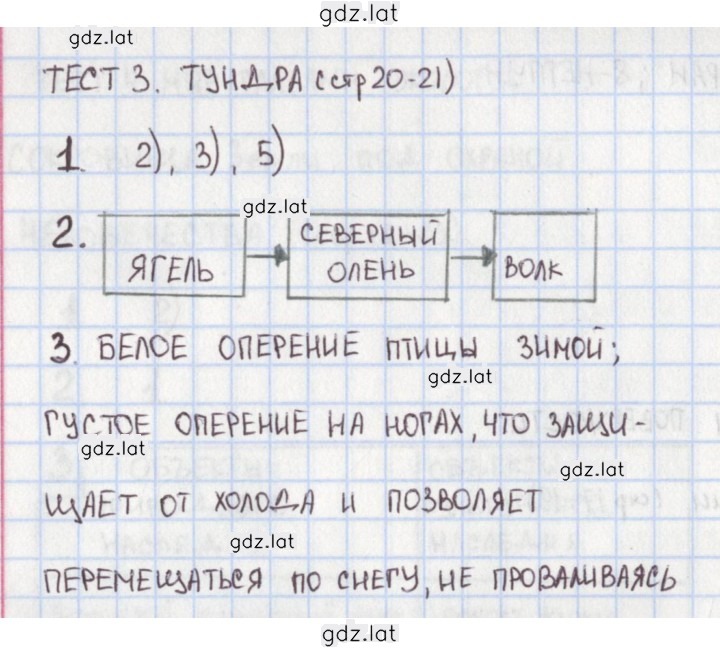 gdz.lat
gdz.lat
ТЕСТ 3. ТУНДРА (стр 20-21)
1. 2), 3), 5)
gdz.lat
2. ЯГЕЛЬ → СЕВЕРНЫЙ ОЛЕНЬ → ВОЛК
3. БЕЛОЕ ОПЕРЕНИЕ ПТИЦЫ ЗИМОЙ;
gdz.lat
ГУСТОЕ ОПЕРЕНИЕ НА НОГАХ, ЧТО ЗАЩИ-
gdz.lat
gdz.lat
ЩАЕТ ОТ ХОЛОДА И ПОЗВОЛЯЕТ
gdz.lat
ПЕРЕМЕЩАТЬСЯ ПО СНЕГУ, НЕ ПРОВАЛИВАЯСЬ
gdz.lat